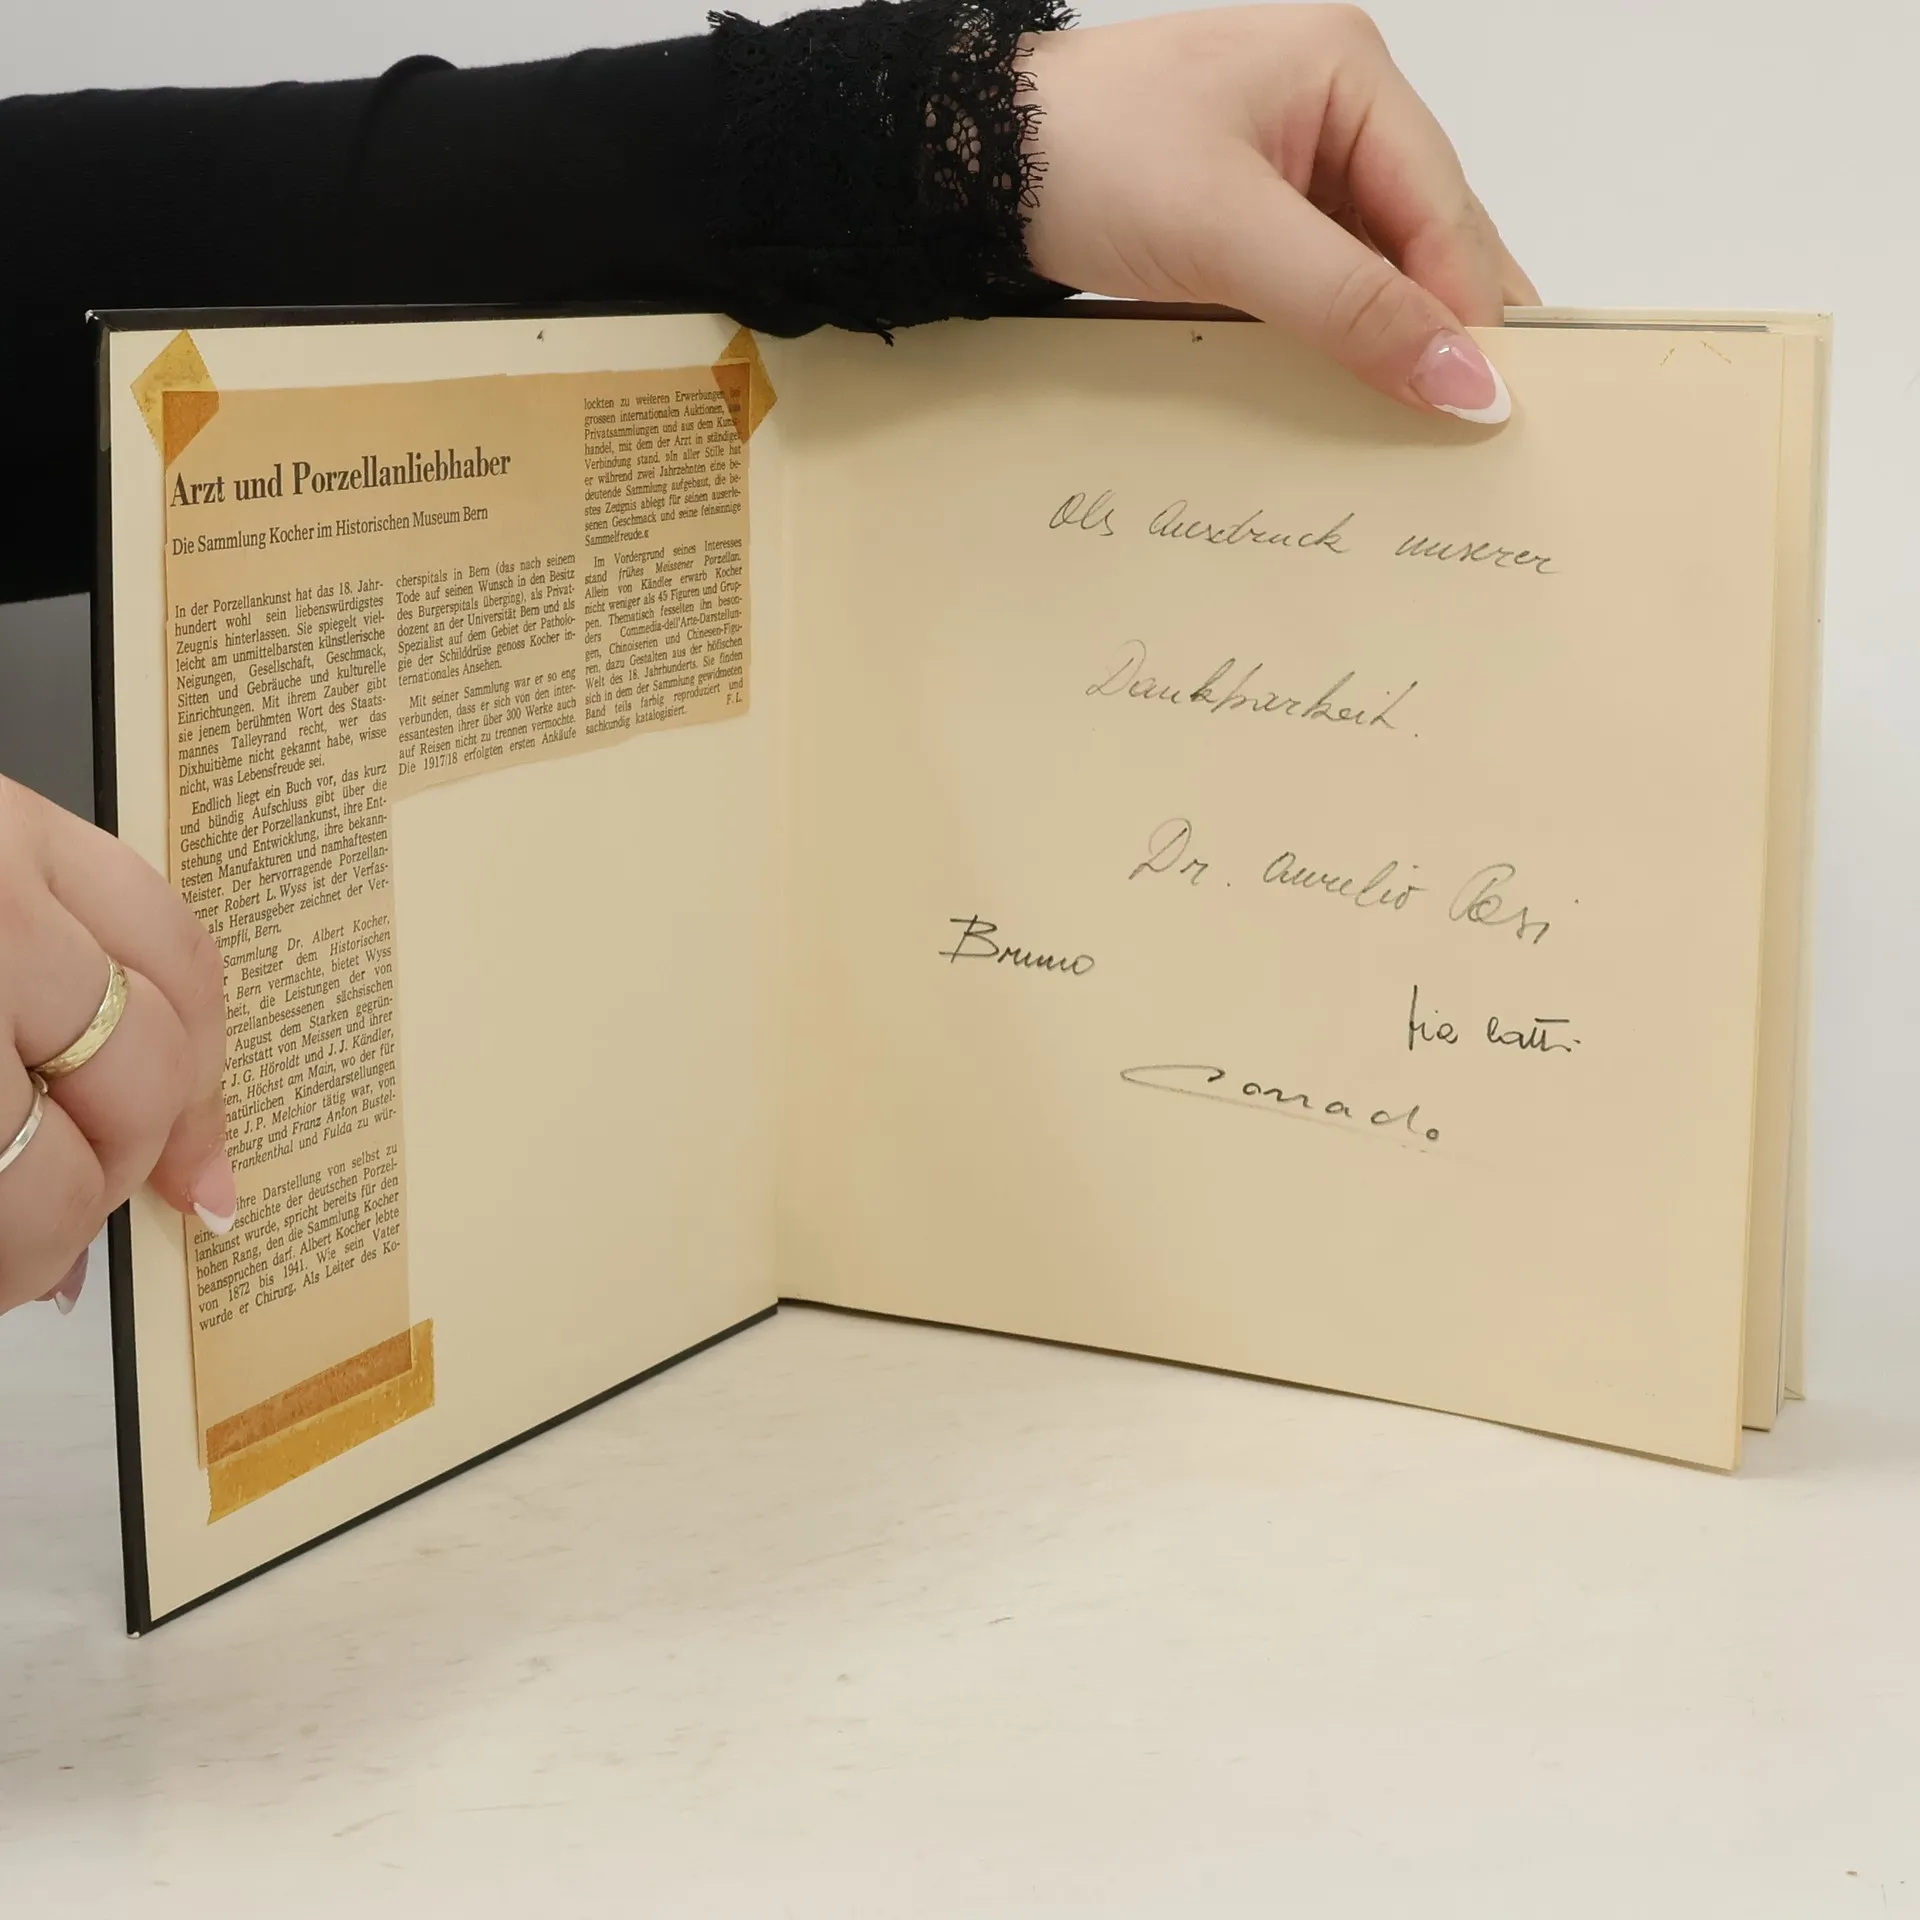 Arzt und Porzellanliebhaber
Die Sammlung Kocher im Historischen Museum Bern
In der Porzellankunst hat das 18. Jahr-
hundert wohl sein liebenswürdigstes
Zeugnis hinterlassen. Sie spiegelt viel-
leicht am unmittelbarsten künstlerische
Neigungen, Gesellschaft, Geschmack,
Sitten und Gebräuche und kulturelle
Einrichtungen. Mit ihrem Zauber gibt
sie jenem berühmten Wort des Staats-
mannes Talleyrand recht, wer das
Dixhuitième nicht gekannt habe, wisse
nicht, was Lebensfreude sei.
Endlich liegt ein Buch vor, das kurz
und bündig Aufschluss gibt über die
Geschichte der Porzellankunst, ihre Ent-
stehung und Entwicklung, ihre bekann-
testen Manufakturen und namhaftesten
Meister. Der hervorragende Porzellan-
nner Robert L. Wyss ist der Verfas-
als Herausgeber zeichnet der Ver-
ämpfli, Bern.
Sammlung Dr. Albert Kocher,
r Besitzer dem Historischen
n Bern vermachte, bietet Wyss
heit, die Leistungen der von
orzellanbesessenen sächsischen
August dem Starken gegrün-
Werkstatt von Meissen und ihrer
r J. G. Höroldt und J. J. Kändler,
ien, Höchst am Main, wo der für
natürlichen Kinderdarstellungen
te J. P. Melchior tätig war, von
enburg und Franz Anton Bustel-
Frankenthal und Fulda zu wür-
ihre Darstellung von selbst zu
eine eschichte der deutschen Porzel-
lankunst wurde, spricht bereits für den
hohen Rang, den die Sammlung Kocher
beanspruchen darf. Albert Kocher lebte
von 1872 bis 1941. Wie sein Vater
wurde er Chirurg. Als Leiter des Ko-
cherspitals in Bern (das nach seinem
Tode auf seinen Wunsch in den Besitz
des Burgerspitals überging), als Privat-
dozent an der Universität Bern und als
Spezialist auf dem Gebiet der Patholo-
gie der Schilddrüse genoss Kocher in-
ternationales Ansehen.
Mit seiner Sammlung war er so eng
verbunden, dass er sich von den inter-
essantesten ihrer über 300 Werke auch
auf Reisen nicht zu trennen vermochte.
Die 1917/18 erfolgten ersten Ankäufe
lockten zu weiteren Erwerbungen
grossen internationalen Auktionen,
Privatsammlungen und aus dem Kunst-
handel, mit dem der Arzt in ständiger
Verbindung stand. »In aller Stille hat
er während zwei Jahrzehnten eine be-
deutende Sammlung aufgebaut, die be-
stes Zeugnis ablegt für seinen auserle-
senen Geschmack und seine feinsinnige
Sammelfreude.«
Im Vordergrund seines Interesses
stand frühes Meissener Porzellan.
Allein von Kändler erwarb Kocher
nicht weniger als 45 Figuren und Grup-
pen. Thematisch fesselten ihn beson-
ders Commedia-dell'Arte-Darstellun-
gen, Chinoiserien und Chinesen-Figu-
ren, dazu Gestalten aus der höfischen
Welt des 18. Jahrhunderts. Sie finden
sich in dem der Sammlung gewidmeten
Band teils farbig reproduziert und
sachkundig katalogisiert. F. L.
Als Ausdruck unserer
Dankbarkeit.
Dr. Aurelio
Bruno
Corrado